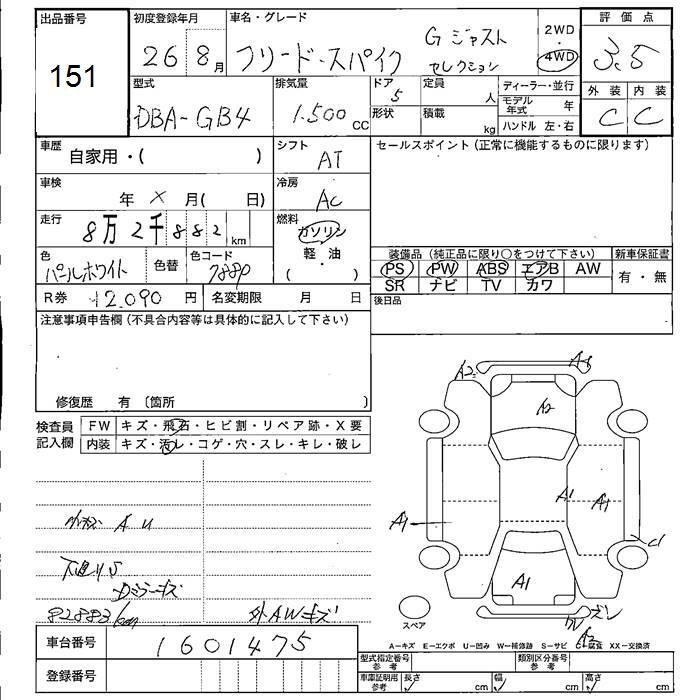 出品番号 初度登録年月 車名・グレード 2WD・4WD 評価点
151 26 8月 フリード・スパイク G ジャスト セレクション 3.5
型式 排気量 ドア 5 定員 人 ディーラー・並行 外装 内装
DBA-GB4 1.500 cc 形状 積載 kg モデル年式 年 C C
ハンドル 左・右
車歴 自家用・( ) シフト AT セールスポイント(正常に機能するものに限ります)
車検 年 × 月( 日) 冷房 AC
走行 8万2千882km 燃料 ガソリン・軽・油 ( )
色 パールホワイト 色替 色コード
装備品(純正品に限り○をつけて下さい) 新車保証書
PS PW ABS エアB AW 有・無
SR ナビ TV カワ
R券 12.090円 名変期限 月 日 後日品
注意事項申告欄(不具合内容等は具体的に記入して下さい)
修復歴 有 〔箇所 〕
検査員記入欄 FW キズ・飛石・ヒビ割・リペア跡・X要
内装 キズ・汚レ・コゲ・穴・スレ・キレ・破レ
A2 A1
A2
A1 A1
A1
A1
A U
Dミラーキズ
82883km 外AWキズ
スペア
A=キズ E=エクボ U=凹み W=補修跡 S=サビ C=腐食 XX=交換済
車台番号 1601475
登録番号
型式指定番号 参考 類別区分番号 参考
車庫証明用 参考 長さ cm 幅 cm 高さ cm